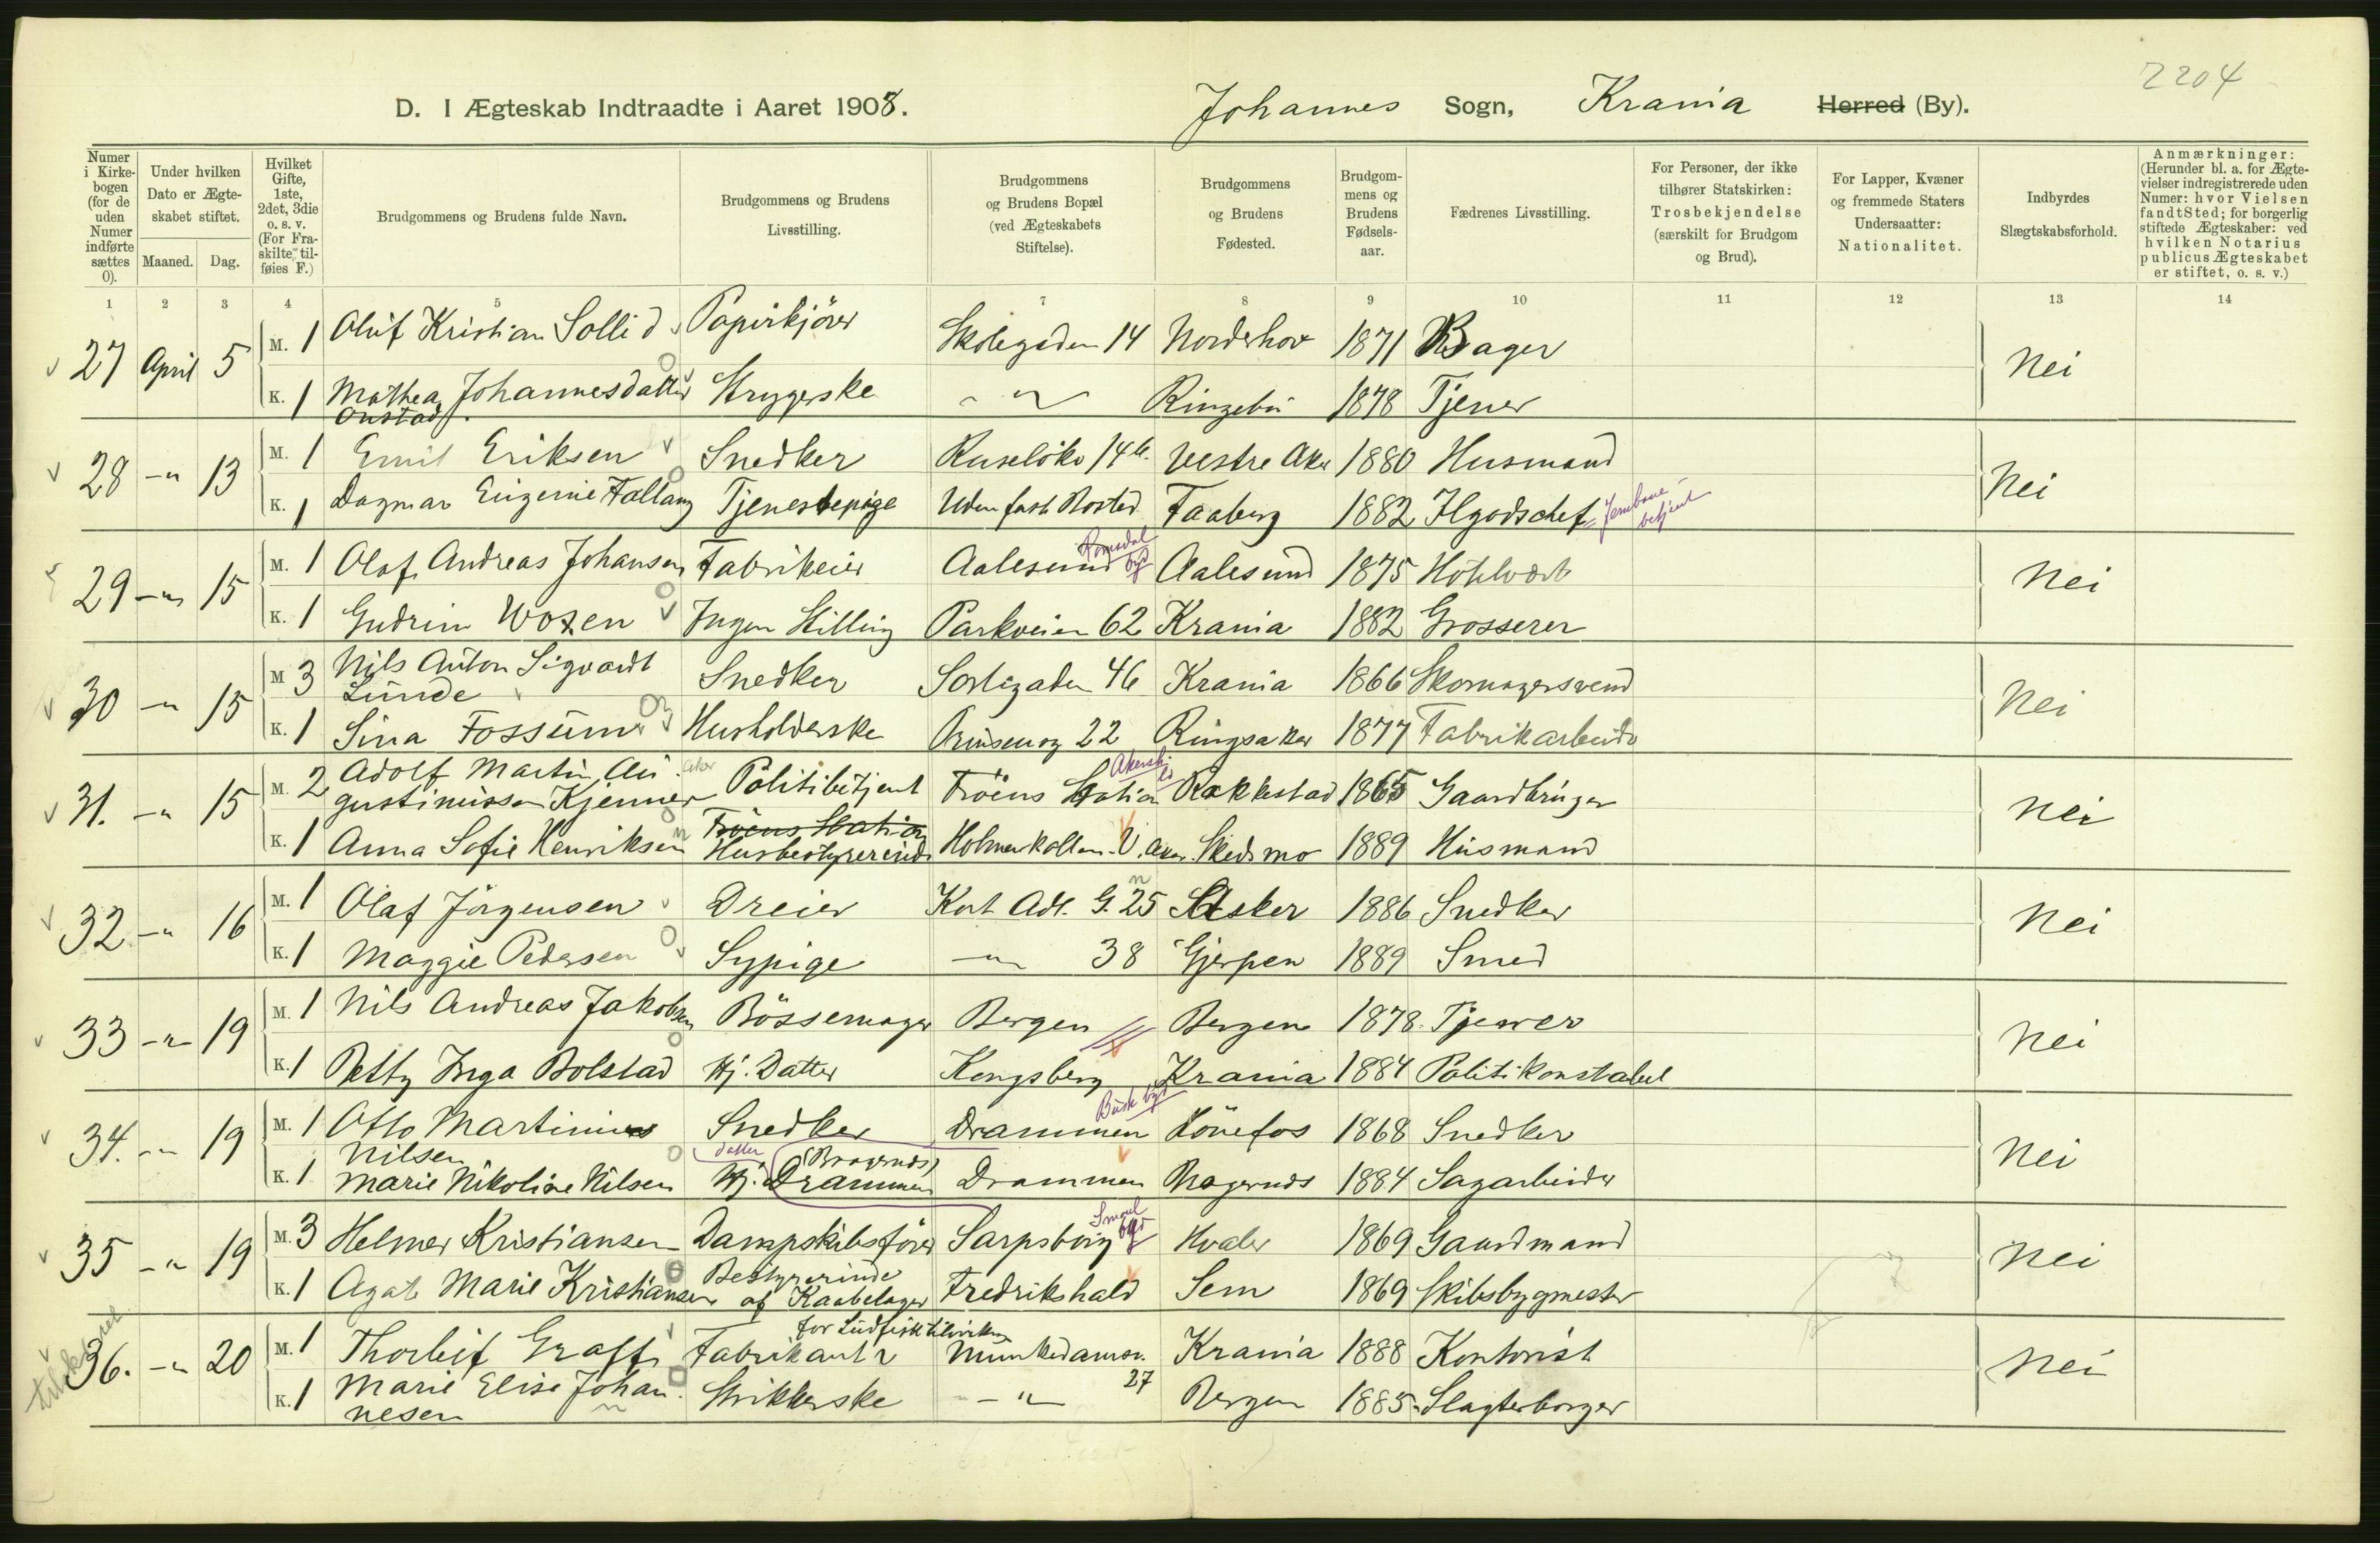 2204
D. I Ægteskab Indtraadte i Aaret 1908. Johannes Sogn, Krania Herred (By).
Numer i Kirkebogen (for de uden Numer indførte sættes 0).
Under hvilken Dato er Ægteskabet stiftet.
Maaned. Dag.
Hvilket Gifte, 1ste, 2det, 3die o. s. v. (For Fraskilte tilføies F.)
Brudgommens og Brudens fulde Navn.
Brudgommens og Brudens Livsstilling.
Brudgommens og Brudens Bopæl (ved Ægteskabets Stiftelse).
Brudgommens og Brudens Fødested.
Brudgommens og Brudens Fødselsaar.
Fædrenes Livsstilling.
For Personer, der ikke tilhører Statskirken: Trosbekjendelse (særskilt for Brudgom og Brud).
For Lapper, Kvæner og fremmede Staters Undersaatter: Nationalitet.
Indbyrdes Slægtskabsforhold.
Anmærkninger: (Herunder bl. a. for Ægtevielser indregistrerede uden Numer: hvor Vielsen fandt Sted; for borgerlig stiftede Ægteskaber: ved hvilken Notarius publicus Ægteskabet er stiftet, o. s. v.)
1 2 3 4 5 7 8 9 10 11 12 13 14
27 April 5 M. 1 Oluf Kristian Sollid Papirkjörer Skolegaden 14 Norderhov 1871 Bager Nei
K. 1 Mathea Johannesdatter Onstad. Strygerske - " - Ringebu 1878 Tjener
28 - " 13 M. 1 Emil Eriksen Snedker Ruselökv 14 b. Vestre Aker 1880 Husmand Nei
K. 1 Dagmar Eugenie Fallang Tjenestepige Uden fast Bosted Faaberg 1882 Ilgodschef = Jernbanebetjent
29 - " 15 M. 1 Olaf Andreas Johansen Fabrikeier Aalesund Romsdal by Aalesund 1875 Hotelvært Nei
K. 1 Gudrun Woxen Ingen Stilling Parkveien 62 Krania 1882 Grosserer
30 - " 15 M 3 Nils Anton Sigvardt Lunde Snedker Sorligaden 46 Krania 1866 Skomagersvend Nei
K. 1 Sina Fossum Husholderske Prinsensg 22 Ringsaker 1877 Fabrikarbeider
31. - " 15 M. 2 Adolf Martin Augustinussen Kjenner Politibetjent Tröens Station Rakkestad 1865 Gaardbruger Nei
K. 1 Anna Sofie Henriksen Tröens Station Husbestyrerinde Holmenkollen. V. Aker. Skedsmo 1889 Husmand
32 - " 16 M. 1 Olaf Jörgensen Dreier Kort Adl. G. 25 Asker 1886 Snedker Nei
K. 1 Maggie Pedersen Sypige - " - 38 Gjerpen 1889 Smed
33 - " 19 M. 1 Nils Andreas Jakobsen Bössemager Bergen Bergen 1878. Tjener Nei
K. 1 Betty Inga Bolstad Hj. Datter Kongsberg Krania 1884 Politikonstabel
34. - " 19 M. 1 Otto Martinius Nilsen Snedker Drammen Busk by Hönefos 1868 Snedker Nei
K. 1 Marie Nikoline Nilsen Hj. datter Drammen (Bragernes) Drammen Bragernes 1884 Sagarbeider
35 - " 19 M. 3 Helmer Kristiansen Dampskibsförer Sarpsborg Smaal byer Hvaler 1869 Gaardmand Nei
K. 1 Agate Marie Kristiansen Bestyrerinde af Kaabelager Fredrikshald Sem 1869 Skibsbygmester
36. - " 20 M. 1 Thorleif Graff Fabrikant for Ludfisktilvirkn Munkedamsv. 27 Krania 1888 Kontorist Nei
K. 1 Marie Elise Johannesen Strikkerske - " - Bergen 1885 Slagterborger